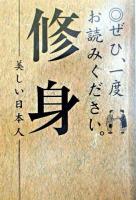 ◎ぜひ、一度
お読みください。
修身
美しい日本人